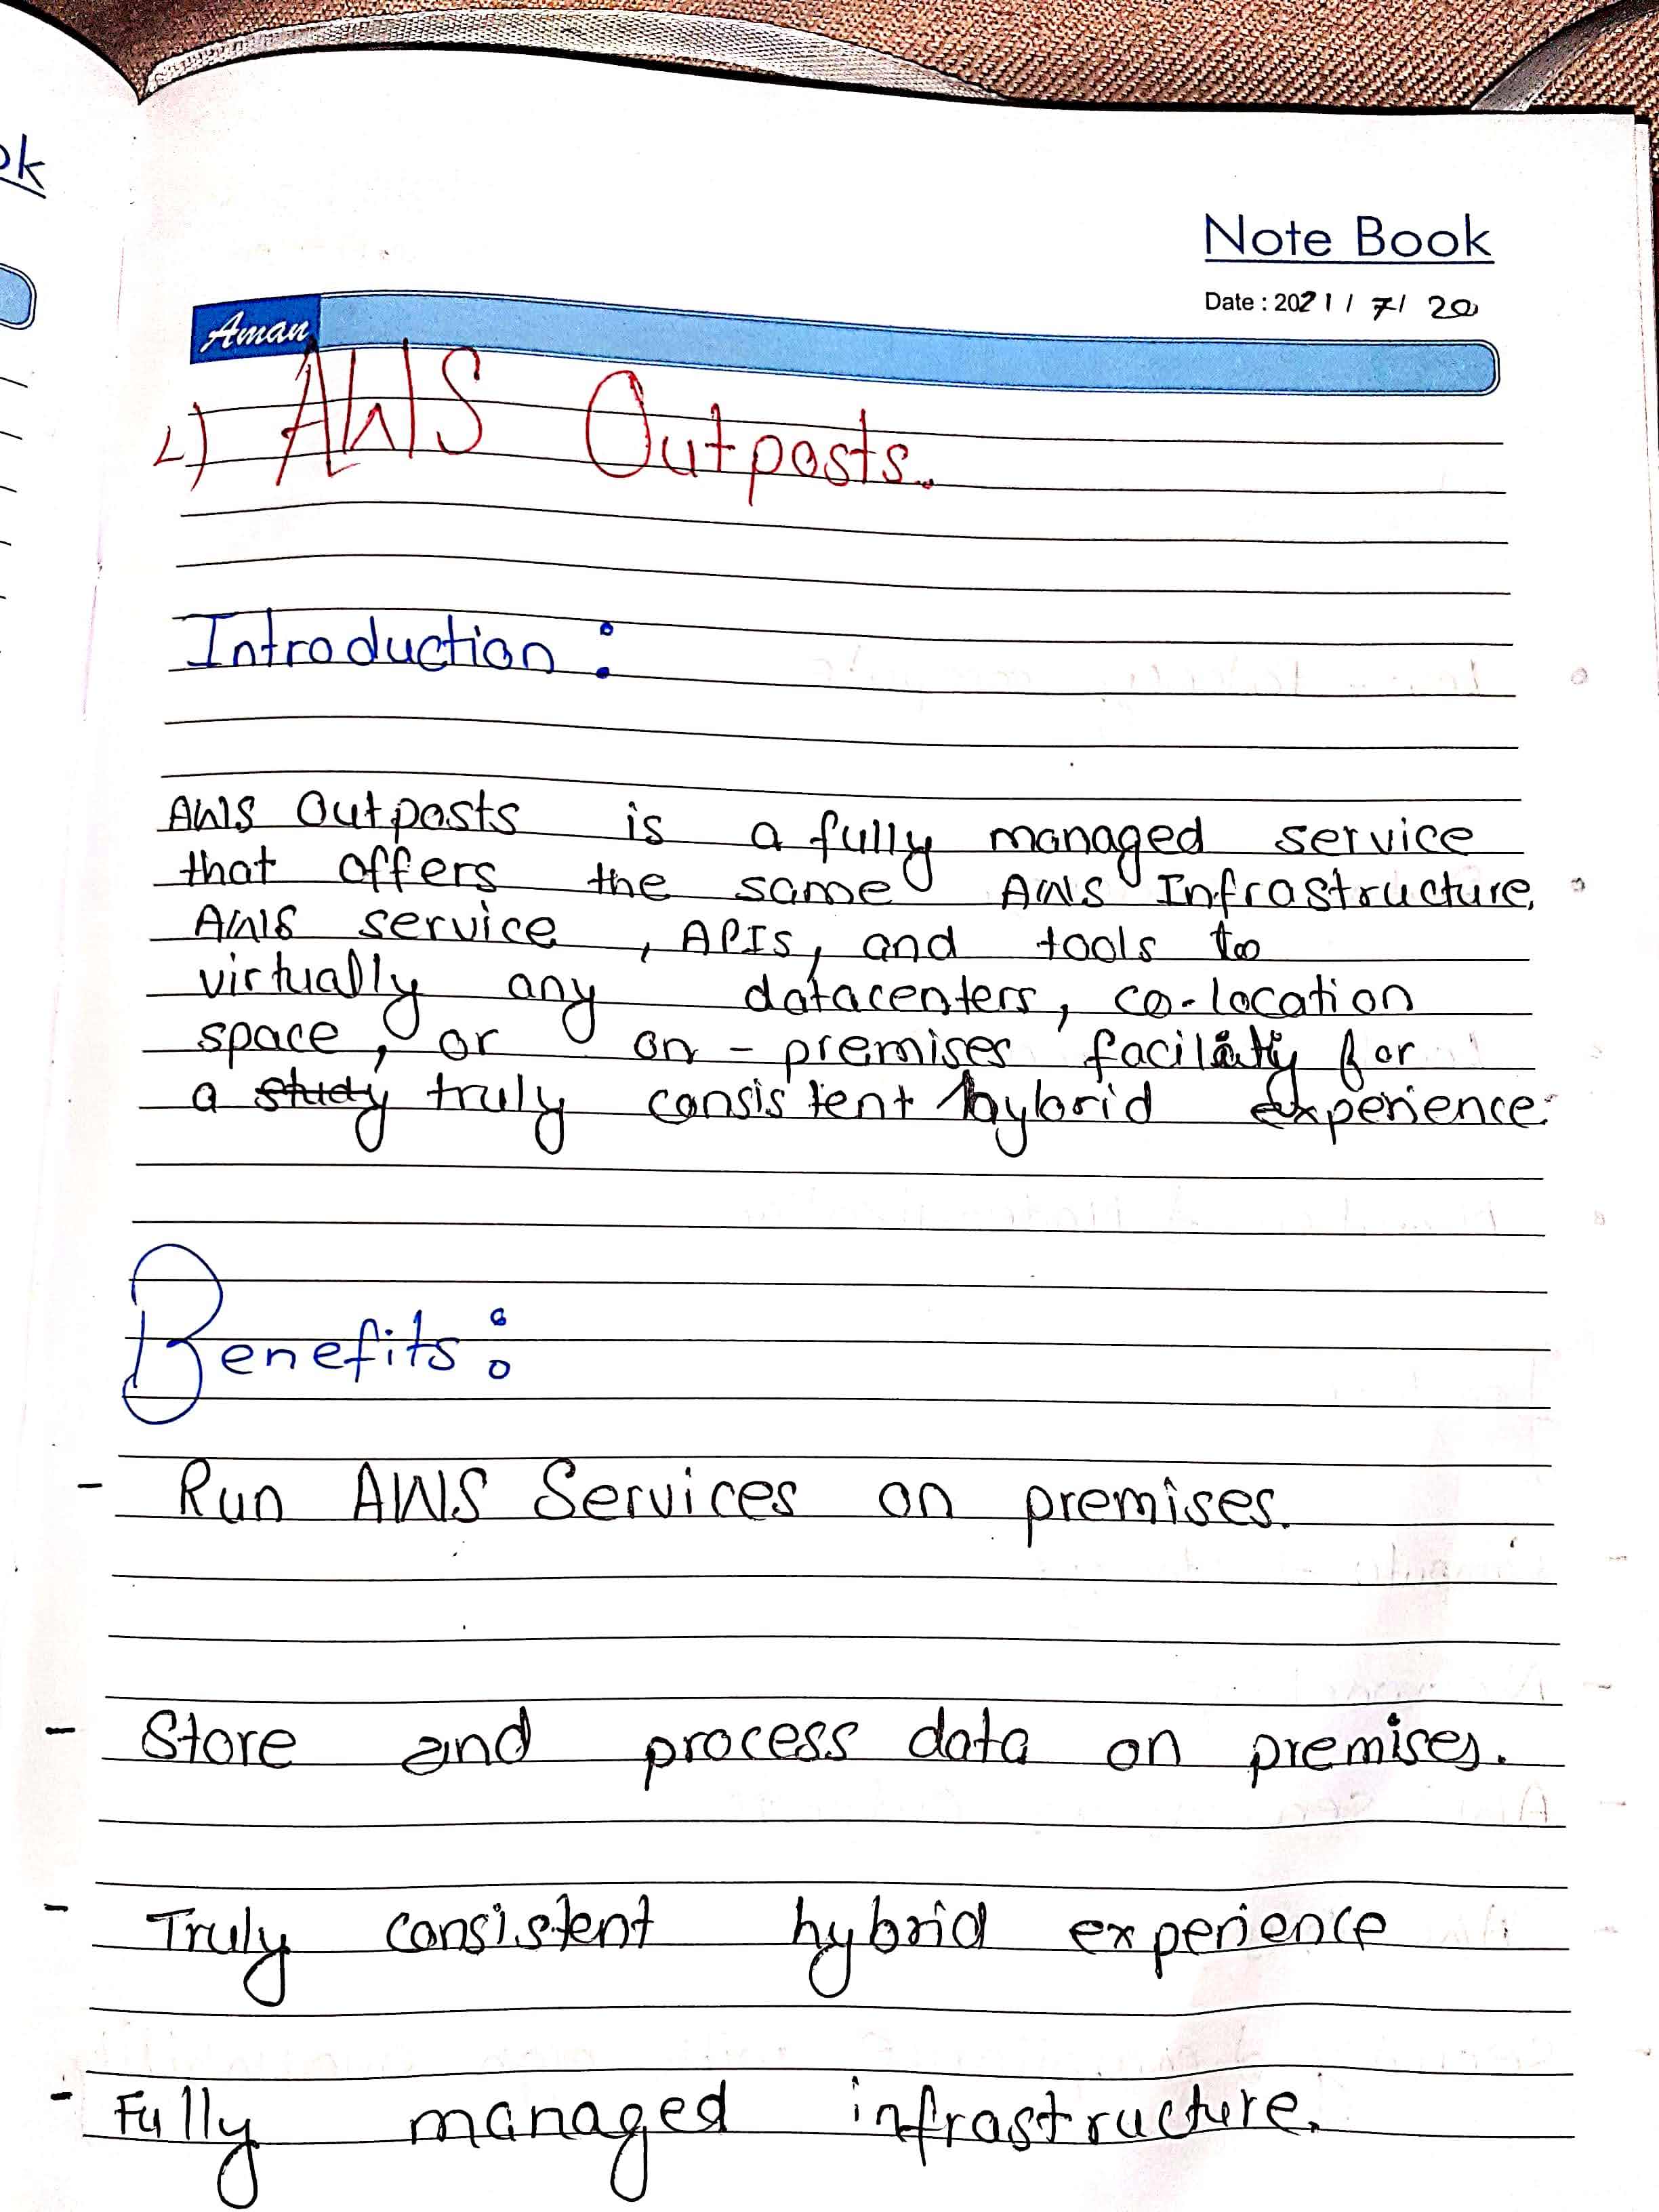 ok
Note Book
Date : 2021 / 7/ 20
Aman
2) AWS Outposts.
Introduction :
AWS Outposts is a fully managed service
that offers the same AWS Infrastructure,
AWS service, APIs, and tools to
virtually any datacenters, co-location
space, or on-premises facility for
a study truly consistent hybrid experience.
Benefits :
- Run AWS Services on premises.
- Store and process data on premises.
- Truly consistent hybrid experience
- Fully managed infrastructure.